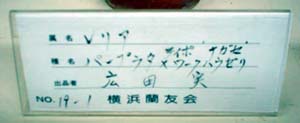 属名 レリア
種名 パープラタ ナガセ×ワークハウゼリ
出品者 広田 実
NO. 19-1 横浜蘭友会